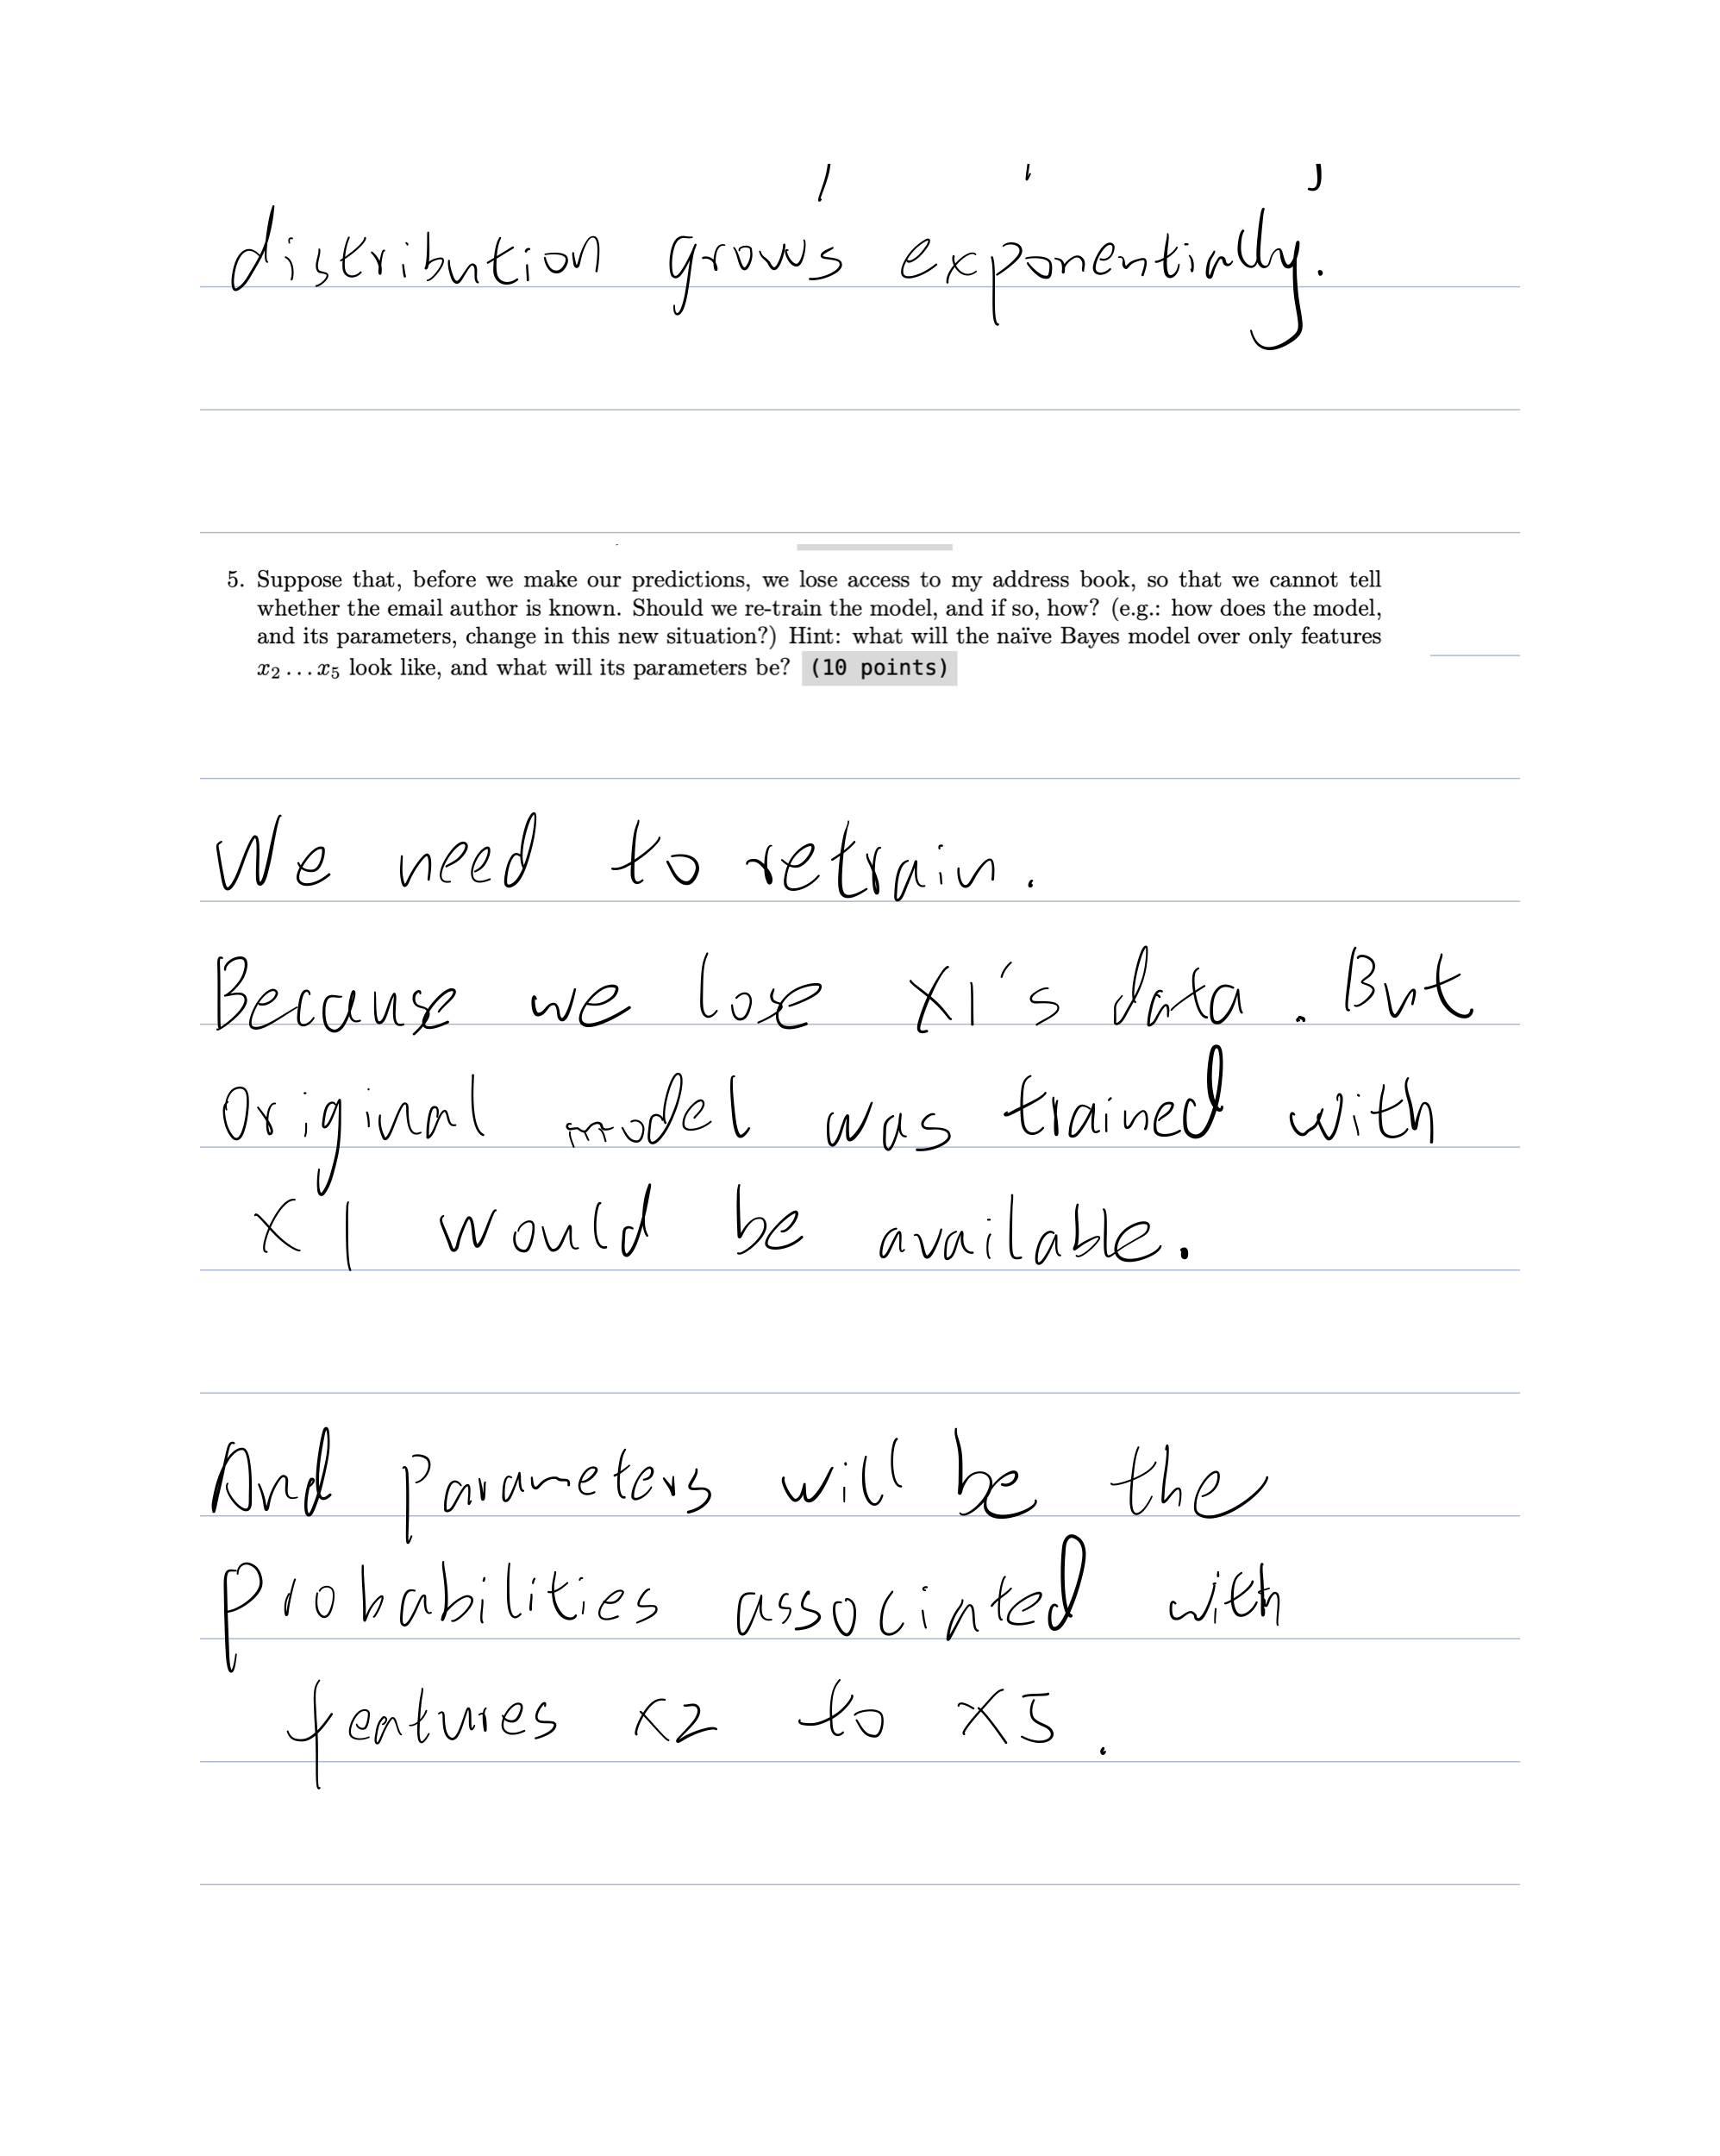 distribution grows exponentially.
5. Suppose that, before we make our predictions, we lose access to my address book, so that we cannot tell
whether the email author is known. Should we re-train the model, and if so, how? (e.g.: how does the model,
and its parameters, change in this new situation?) Hint: what will the naïve Bayes model over only features
x₂ … x₅ look like, and what will its parameters be? (10 points)
We need to retrain.
Because we lose X1's data. But
original model was trained with
X1 would be available.
And parameters will be the
probabilities associated with
features x2 to x5.